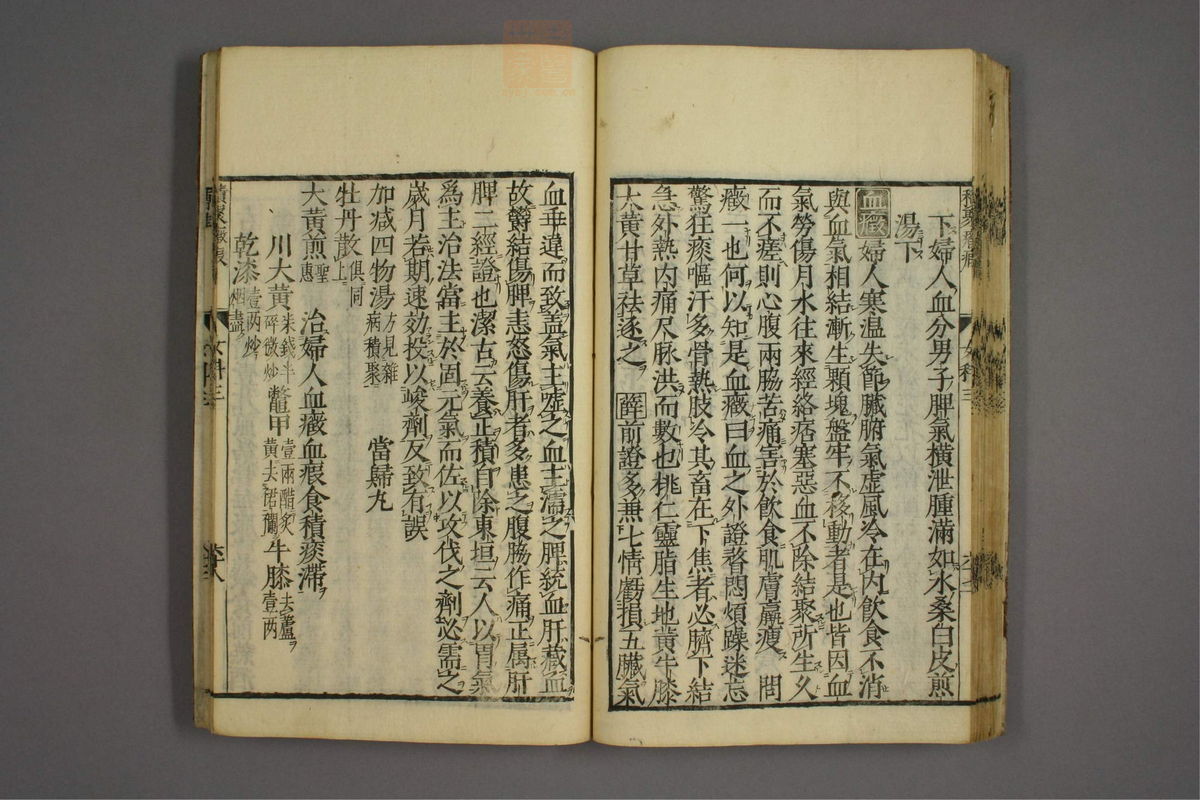 下婦人血分男子脾氣橫泄腫滿如水桑白皮煎
湯下
血癥 婦人寒温失節臟腑氣虛風冷在內飲食不消
與血氣相結漸生顆塊盤牢不移動者是也皆因血
氣勞傷月水往來經絡痞塞惡血不除結聚所生久
而不瘥則心腹兩脇苦痛害於飲食肌膚羸瘦 問
癥一也何以知是血癥曰血之外證瞀悶煩躁迷忘
驚狂痰嘔汗多骨熱肢冷其畜在下焦者必臍下結
急外熱內痛尺脉洪而數也桃仁靈脂生地黃牛膝
大黃甘草祛逐之 薛 前證多兼七情虧損五臟氣
血乖違而致盖氣主噓之血主濡之脾統血肝藏血
故鬱結傷脾恚怒傷肝者多患之腹脇作痛正属肝
脾二經證也潔古云養正積自除東垣云人以胃氣
爲主治法當主於固元氣而佐以攻伐之劑必需之
歲月若期速効投以峻劑反致有誤
加减四物湯 方見雜病積聚 當歸丸
牡丹散 俱同上
大黃煎 聖惠 治婦人血癥血瘕食積痰滯
川大黃 米錢半碎微炒 鱉甲 壹兩醋炙黃去裙襴 牛膝 去蘆壹两
乾漆 壹两炒烟盡
女科三